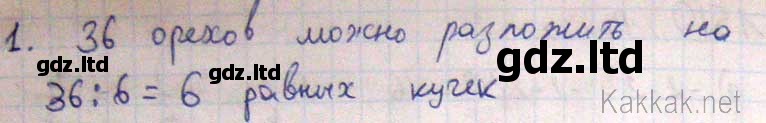 1. 36 орехов можно разложить на
gdz.ltd gdz.ltd gdz.ltd
36:6 = 6 равных кучек
Kakkak.net